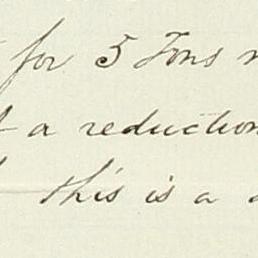 for 5 Tons
a reduction
this is a